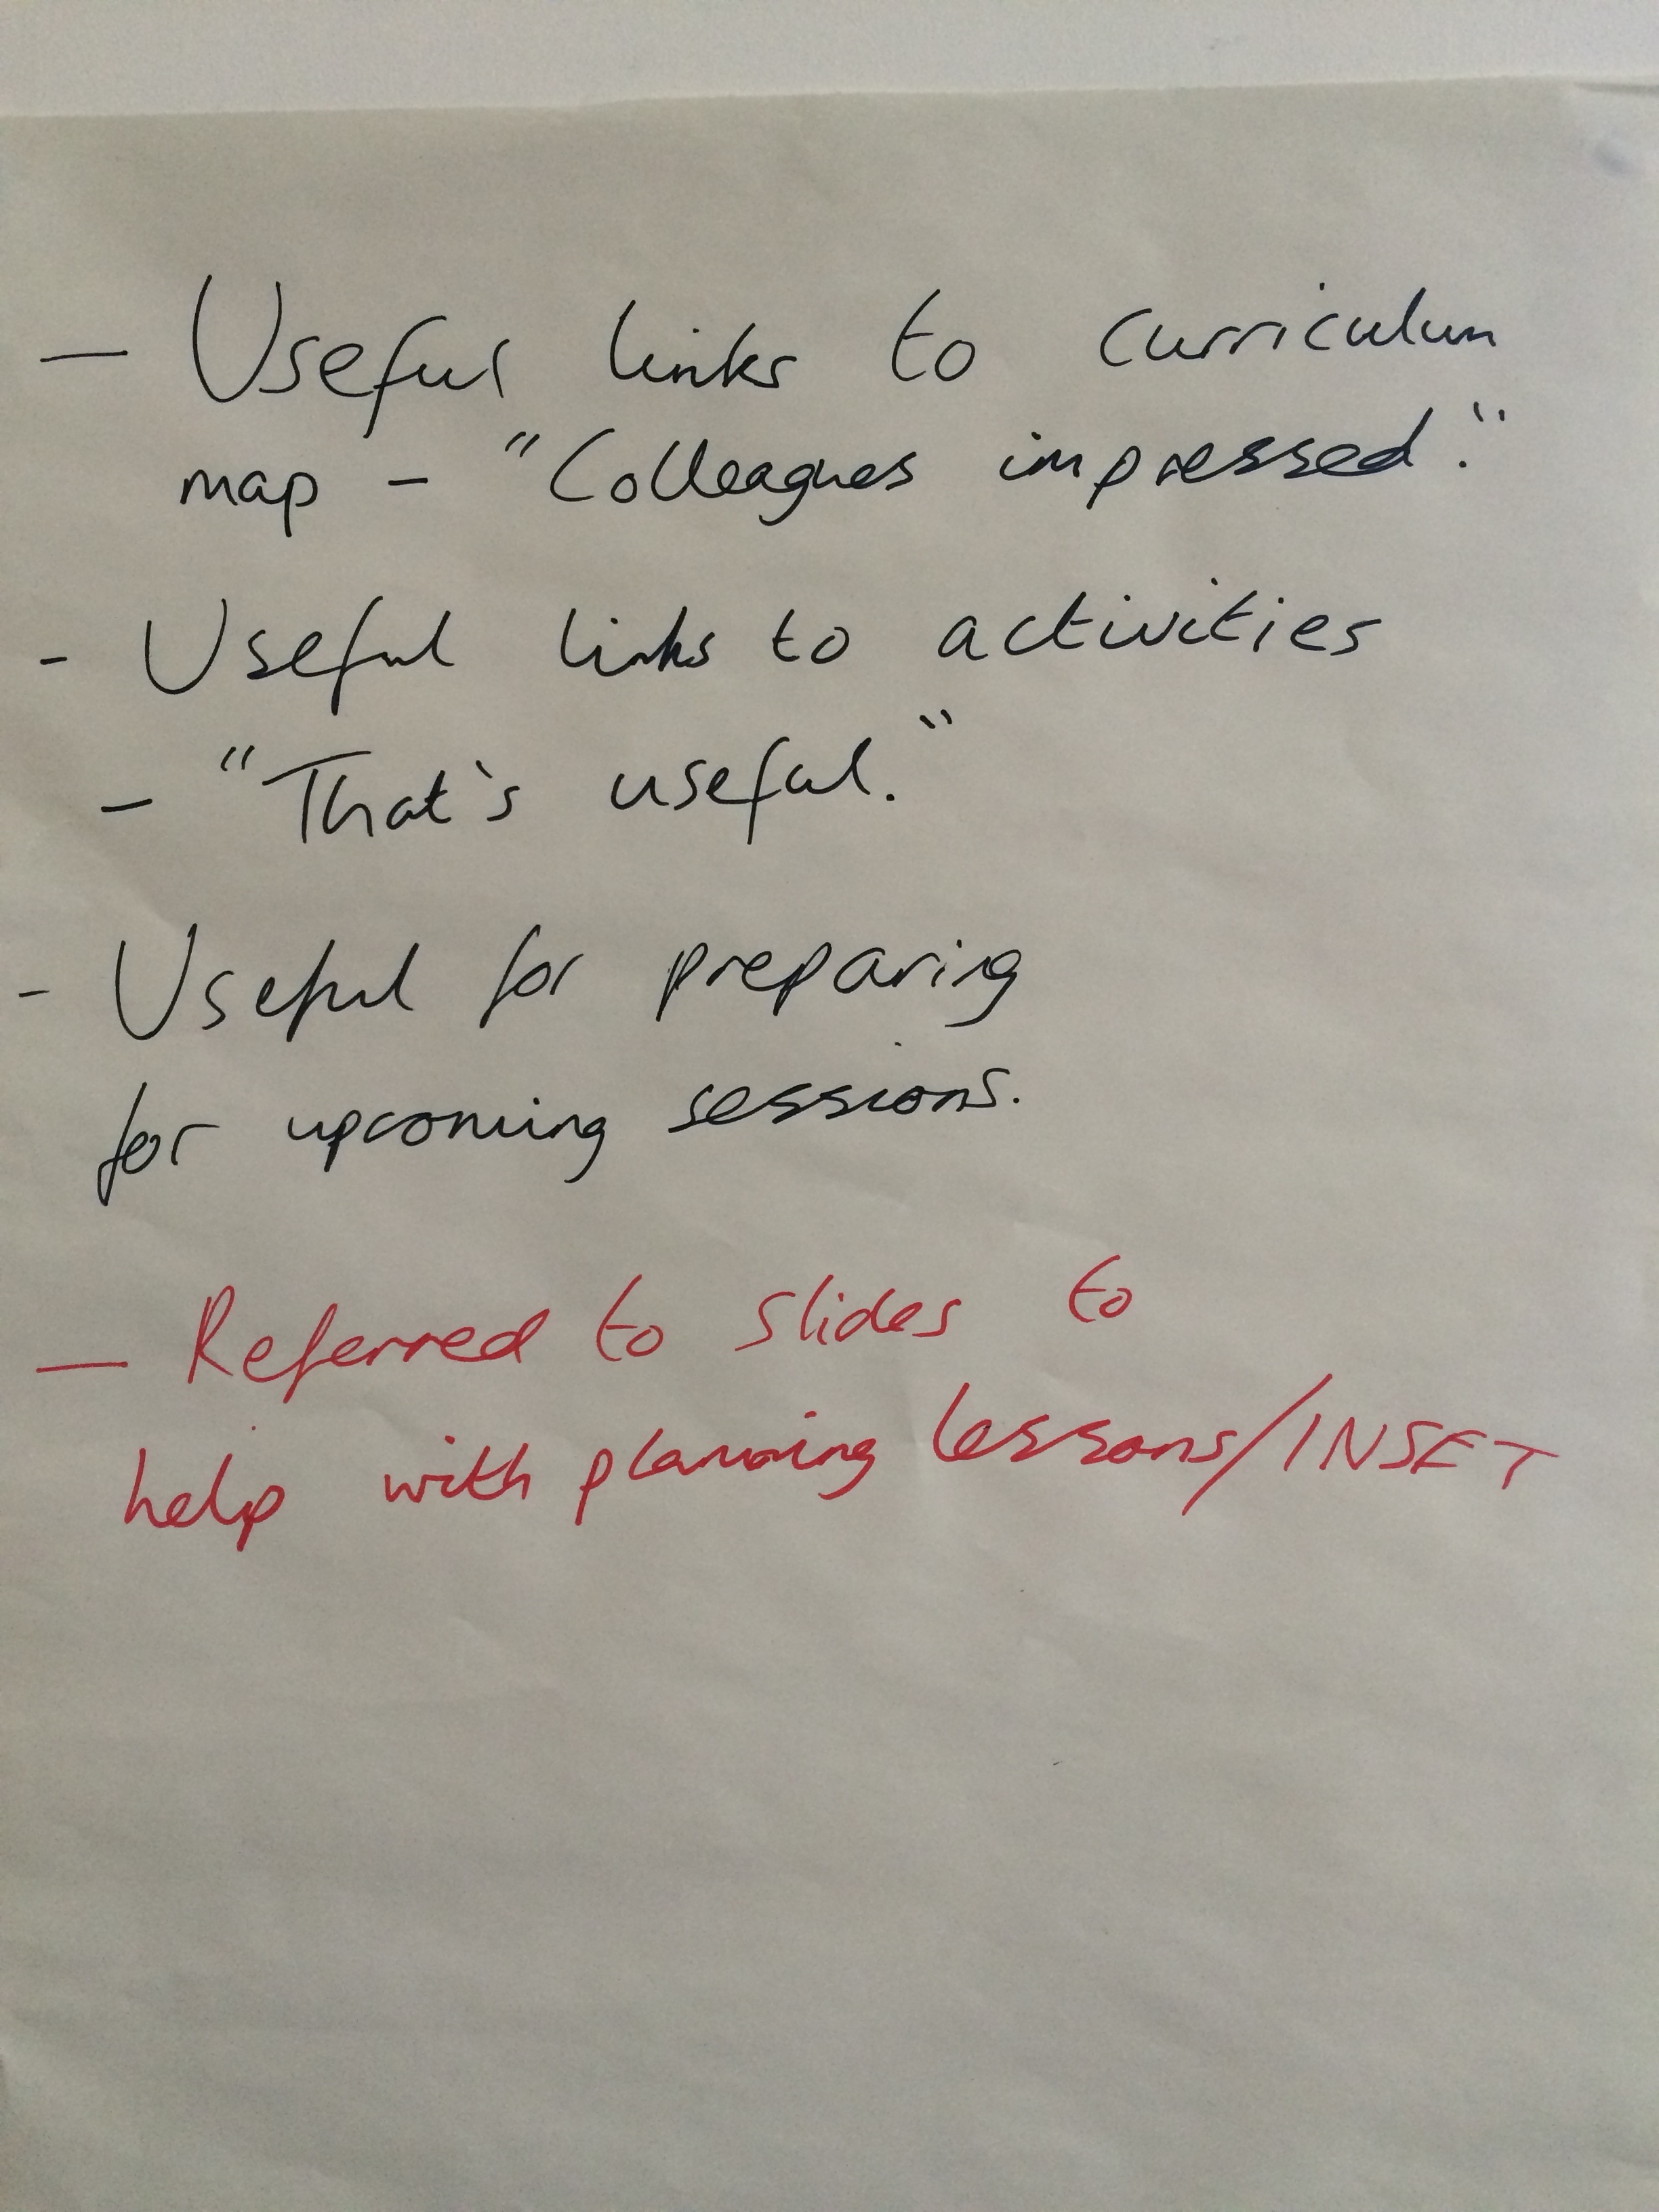 — Useful links to curriculum
map - "Colleagues impressed."
- Useful links to activities
- "That's useful."
- Useful for preparing
for upcoming sessions.
— Referred to slides to
help with planning lessons/INSET